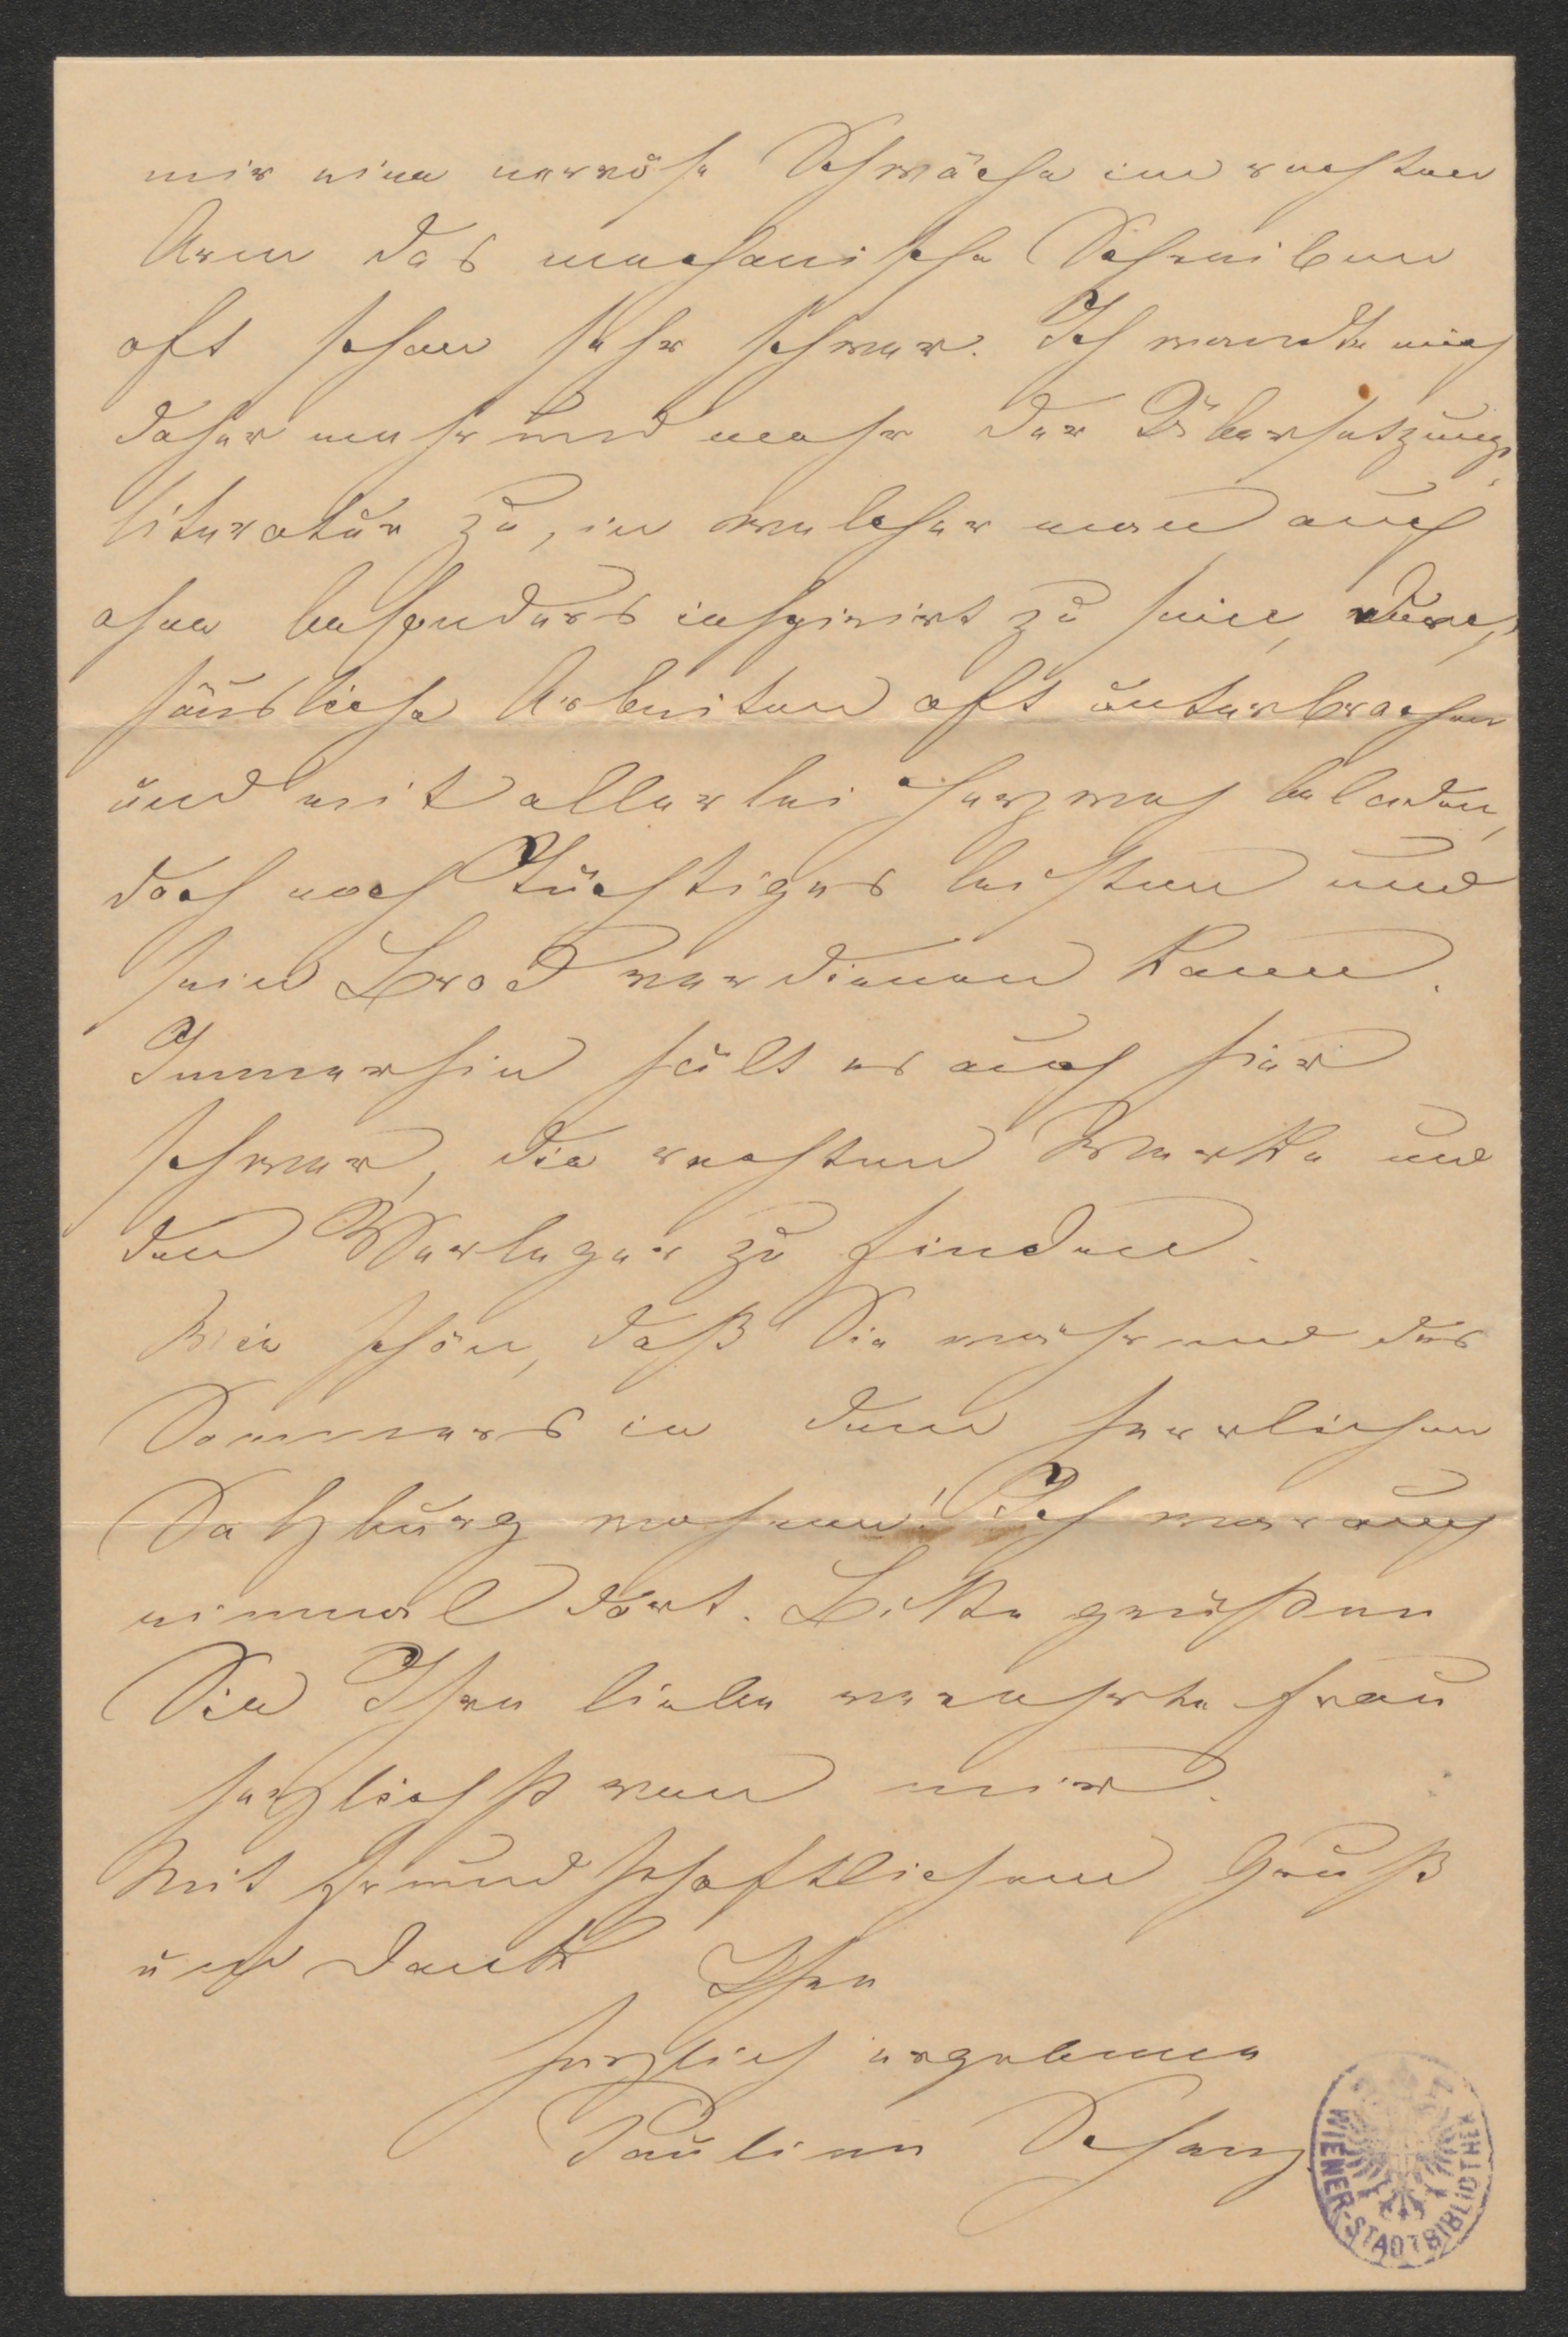 mir eine nervöse Schwäche im rechten
Arm das mechanische Schreiben
oft schon sehr schwer. Ich wandte mich
daher mehr und mehr der Übersetzungs-
literatur zu, in welcher man auch
ohne besonders inspirirt zu sein, durch
häusliche Arbeiten oft unterbrochen
und mit allerlei Herzweh beladen,
doch noch Tüchtiges leisten und
sein Brod verdienen kann.
Immerhin hält es auch hier
schwer, die rechten Werke und
den Verleger zu finden.
Wie schön, daß Sie während des
Sommers in dem herrlichen
Salzburg wohnen! Ich war auch
einmal dort. Bitte grüßen
Sie Ihre liebe verehrte Frau
herzlichst von mir.
Mit freundschaftlichem Gruß
und Dank Ihre
herzlich ergebene
Pauline Schanz
WIENER-STADTBIBLIOTHEK